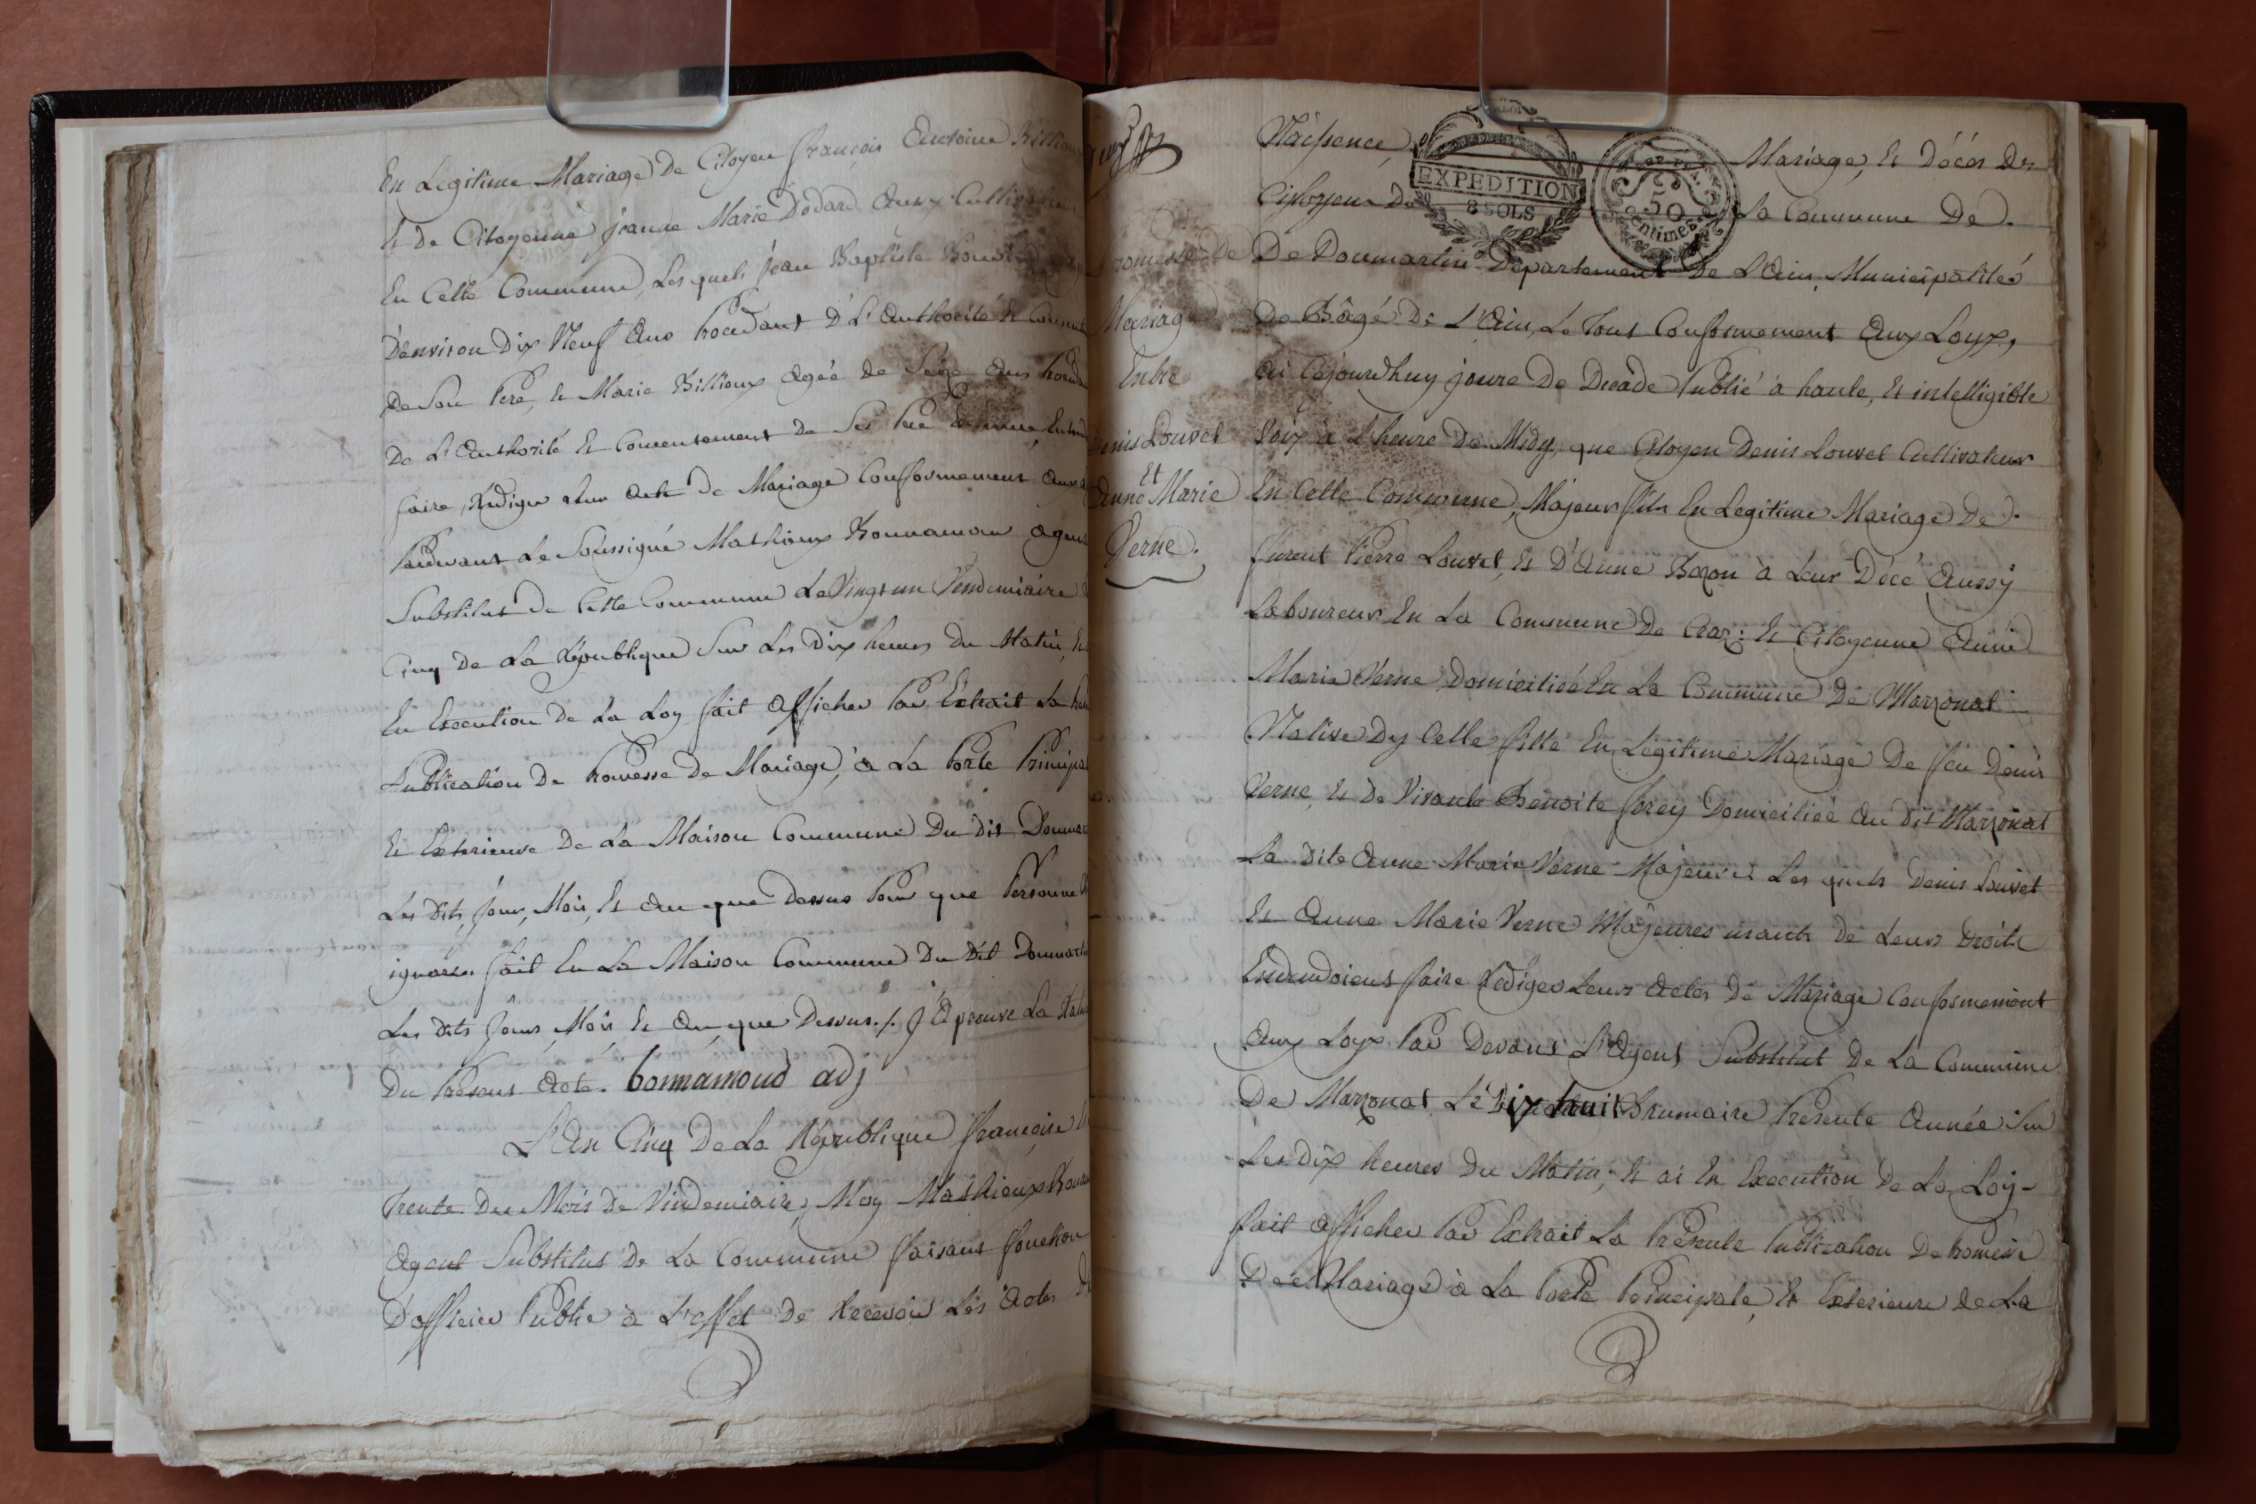 En Legitime Mariage De Citoyen francois Antoine Billioux
Et De Citoyenne jeanne Marie Dodard Aussy Cultivateurs
En Cette Commune, Les quels jean Baptiste
D'environ Dix Neuf Ans procédant D L'Authorité Et
De Son Pere, Et Marie Billioux Agée De Seize Ans
De L'Authorité Et Consentement De Ses Pere Et mere,
faire Rediger Leur Acte De Mariage Conformement Aux
Pardevant Le Soussigné Mathieux Bonnamour Agent
Substitut De Cette Commune Le Vingt un Vendemiaire
Cinq De La République Sur Les Dix heures Du Matin, Et
En Execution De La Loy fait Afficher Par Extrait La
Publication De Promesse De Mariage, à La Porte Principale
Et Exterieure De La Maison Commune Du Dit
Les Dits jour, Mois, Et An que Dessus Pour que Personne
ignores. fait En La Maison Commune Du Dit
Les Dits Jours Mois Et An que Dessus./. J'Aprouve La
Du Present Acte. bonnamoud adj
L'An Cinq De La République françoise
Trente Du Mois De Vindemiaire, Moy Mathieux
Agent Substitut De La Commune faisant fonction
D'officier Public à L'effet De Recevoir Les Actes
Naissence, Mariage, Et Décés Des
EXPEDITION
8 SOLS
50
Centimes
Citoyens De La Commune De
Promesse de
Mariage
Entre
Denis Louvet
Et
Anne Marie
Verne.
De Doumartin Departement De L'Ain, Municipalité
De Bâgé De L'Ain, Le Tout Conformement Aux Loyx,
Ai Cejourdhuy joure De Decade Publié à haute, Et intelligible
Voix à L'heure De Midy, que Citoyen Denis Louvet Cultivateur
En Cette Commune, Majeur fils En Legitime Mariage De
furent Pierre Louvet, Et D'Anne Bozon à Leur Décé Aussy
Laboureurs En La Commune De Craz: Et Citoyenne Anne
Marie Verne Domiciliée En La Commune De Marzonat
Native Dy Celle fille En Legitime Mariage De feu Denis
Verne, Et De Vivante Benoite forey Domiciliée Au Dit Marzonat
La Dite Anne Marie Verne Majeure: Les quels Denis Louvet
Et Anne Marie Verne Majeures usants De Leurs Droits
Entendoient faire Rediger Leurs Actes De Mariage Conformement
Aux Loyx Par Devant L'Agent Substitut De La Commune
De Marzonat Le Dix huit Brumaire Presente Année Sur
Les Dix heures Du Matin; Et ai En Execution De La Loy
fait Afficher Par Extrait La Presente Publication De Promesse
De Mariage à La Porte Principale, Et Exterieure De La